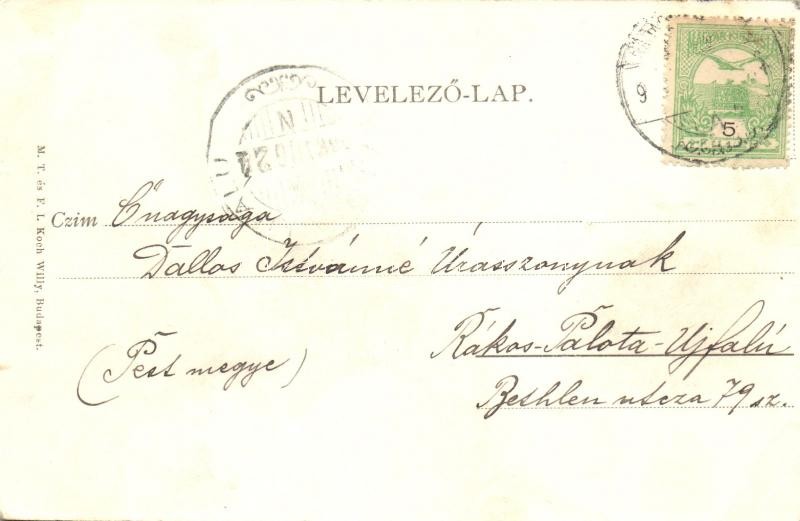 LEVELEZŐ-LAP.
5
Czim Őnagysága
Dallos Istvánné Úrasszonynak
Rákos-Palota-Ujfalú
(Pest megye)
Bethlen utcza 79 sz.
M. T. és F. L. Koch Willy, Budapest.